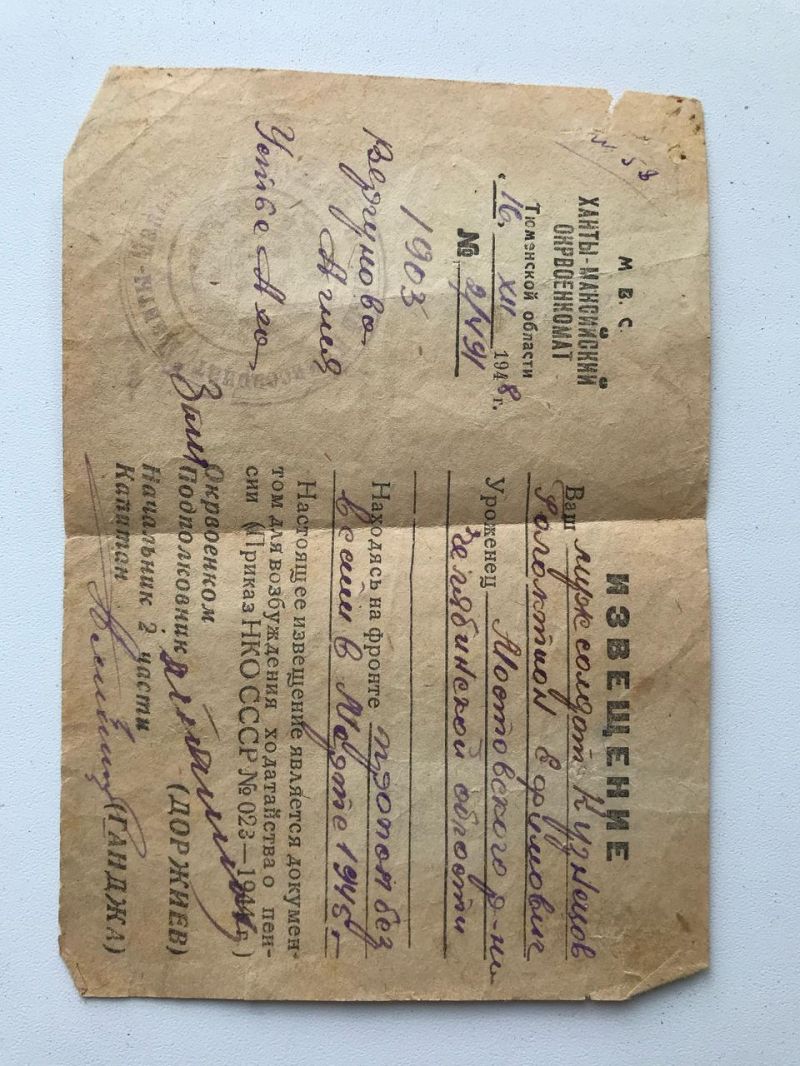 № 58
М. В. С.
ХАНТЫ-МАНСИЙСКИЙ
ОКРВОЕНКОМАТ
Тюменской области
„16. XII 1948 г.
№ 2/491
1903
Вергуново
Агния
Устье Аго
ИЗВЕЩЕНИЕ
Ваш муж солдат Кузнецов
Галактион Ефимович
Уроженец Мостовского р-на
Челябинской области
Находясь на фронте пропал без
вести в Марте 1945 г
Настоящее извещение является докумен-
том для возбуждения ходатайства о пен-
сии (Приказ НКО СССР № 023—1944 г.)
Зам Окрвоенком
Подполковник (ДОРЖИЕВ)
Начальник 2 части
Капитан (ГАНДЖА)